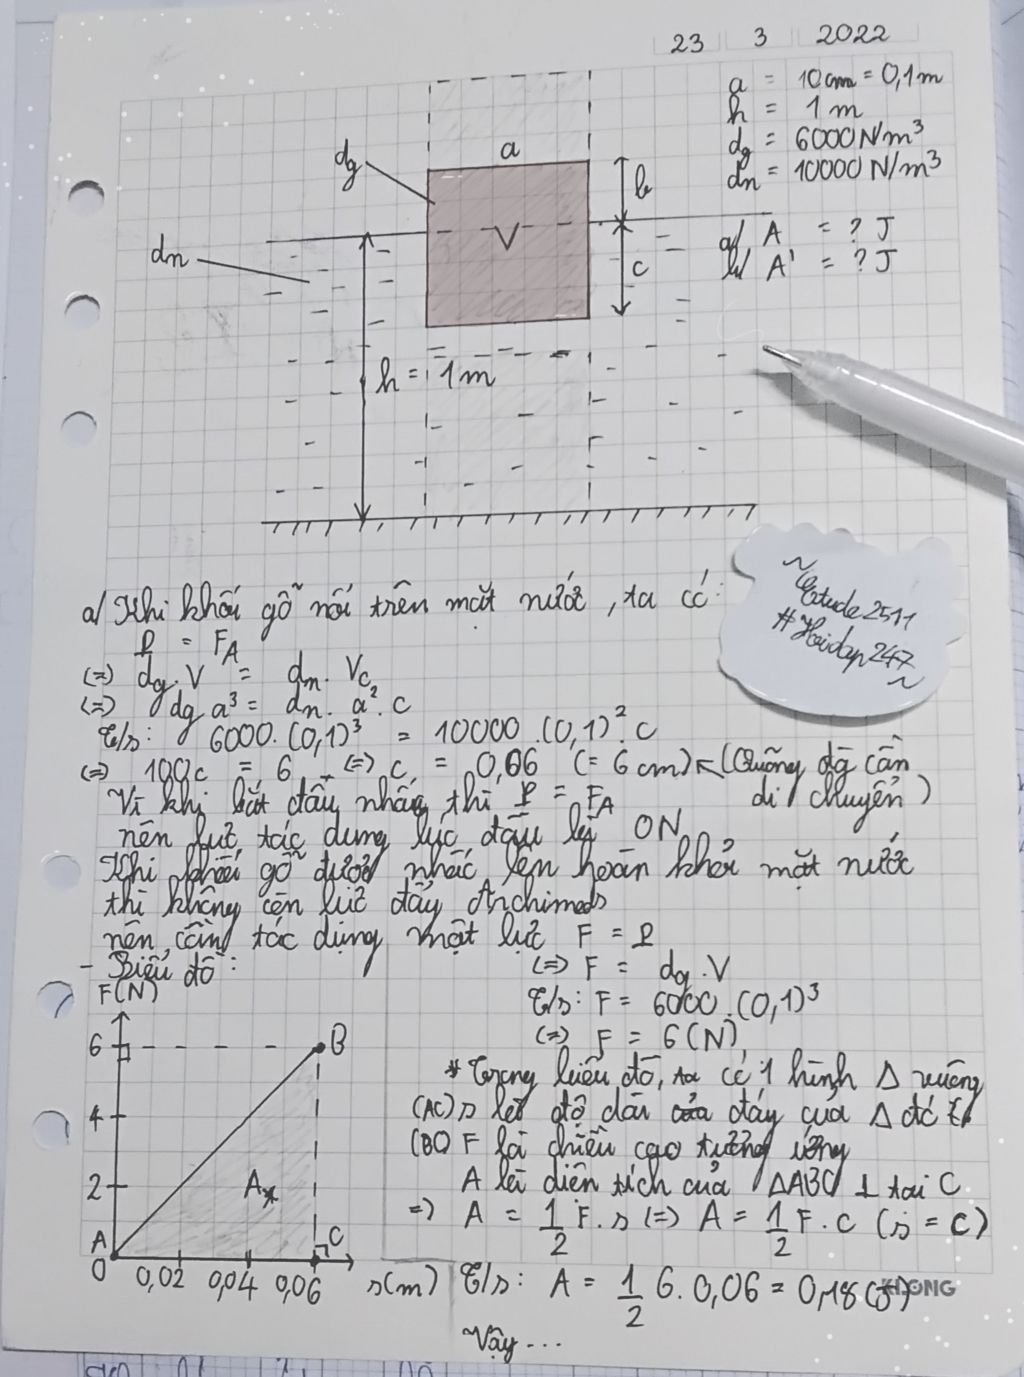 23 3 2022
a = 10cm = 0,1m
h = 1m
dg = 6000N/m³
dn = 10000N/m³
a/ A = ? J
b/ A' = ? J
a
dg
b
V
dn
c
h = 1m
~Etude2511
#Hoidap247~
a/ Khi khối gỗ nổi trên mặt nước, ta có:
P = FA
(=) dg.V = dn.Vc
(=) dg.a³ = dn.a².c
T/s: 6000.(0,1)³ = 10000.(0,1)².c
(=) 100c = 6 (=) c = 0,06 (= 6cm) ← (Quãng đg cần
di chuyển)
Vì khi bắt đầu nhấc thì P = FA
nên lực tác dụng lúc đầu là 0N
Khi khối gỗ được nhấc lên hoàn khỏi mặt nước
thì không còn lực đẩy Archimeds
nên cần tác dụng một lực F = P
(=) F = dg.V
T/s: F = 6000.(0,1)³
(=) F = 6(N)
- Biểu đồ:
F(N)
6
B
4
2
A*
A
C
0
0,02 0,04 0,06 s(m)
* Trong biểu đồ, ta có 1 hình Δ vuông
(AC) s là độ dài của đáy của Δ đó
(BC) F là chiều cao tương ứng
A là diện tích của ΔABC ⊥ tại C
=) A = 1/2 F.s (=) A = 1/2 F.c (s = c)
T/s: A = 1/2 6.0,06 = 0,18(J)
KLONG
Vậy...